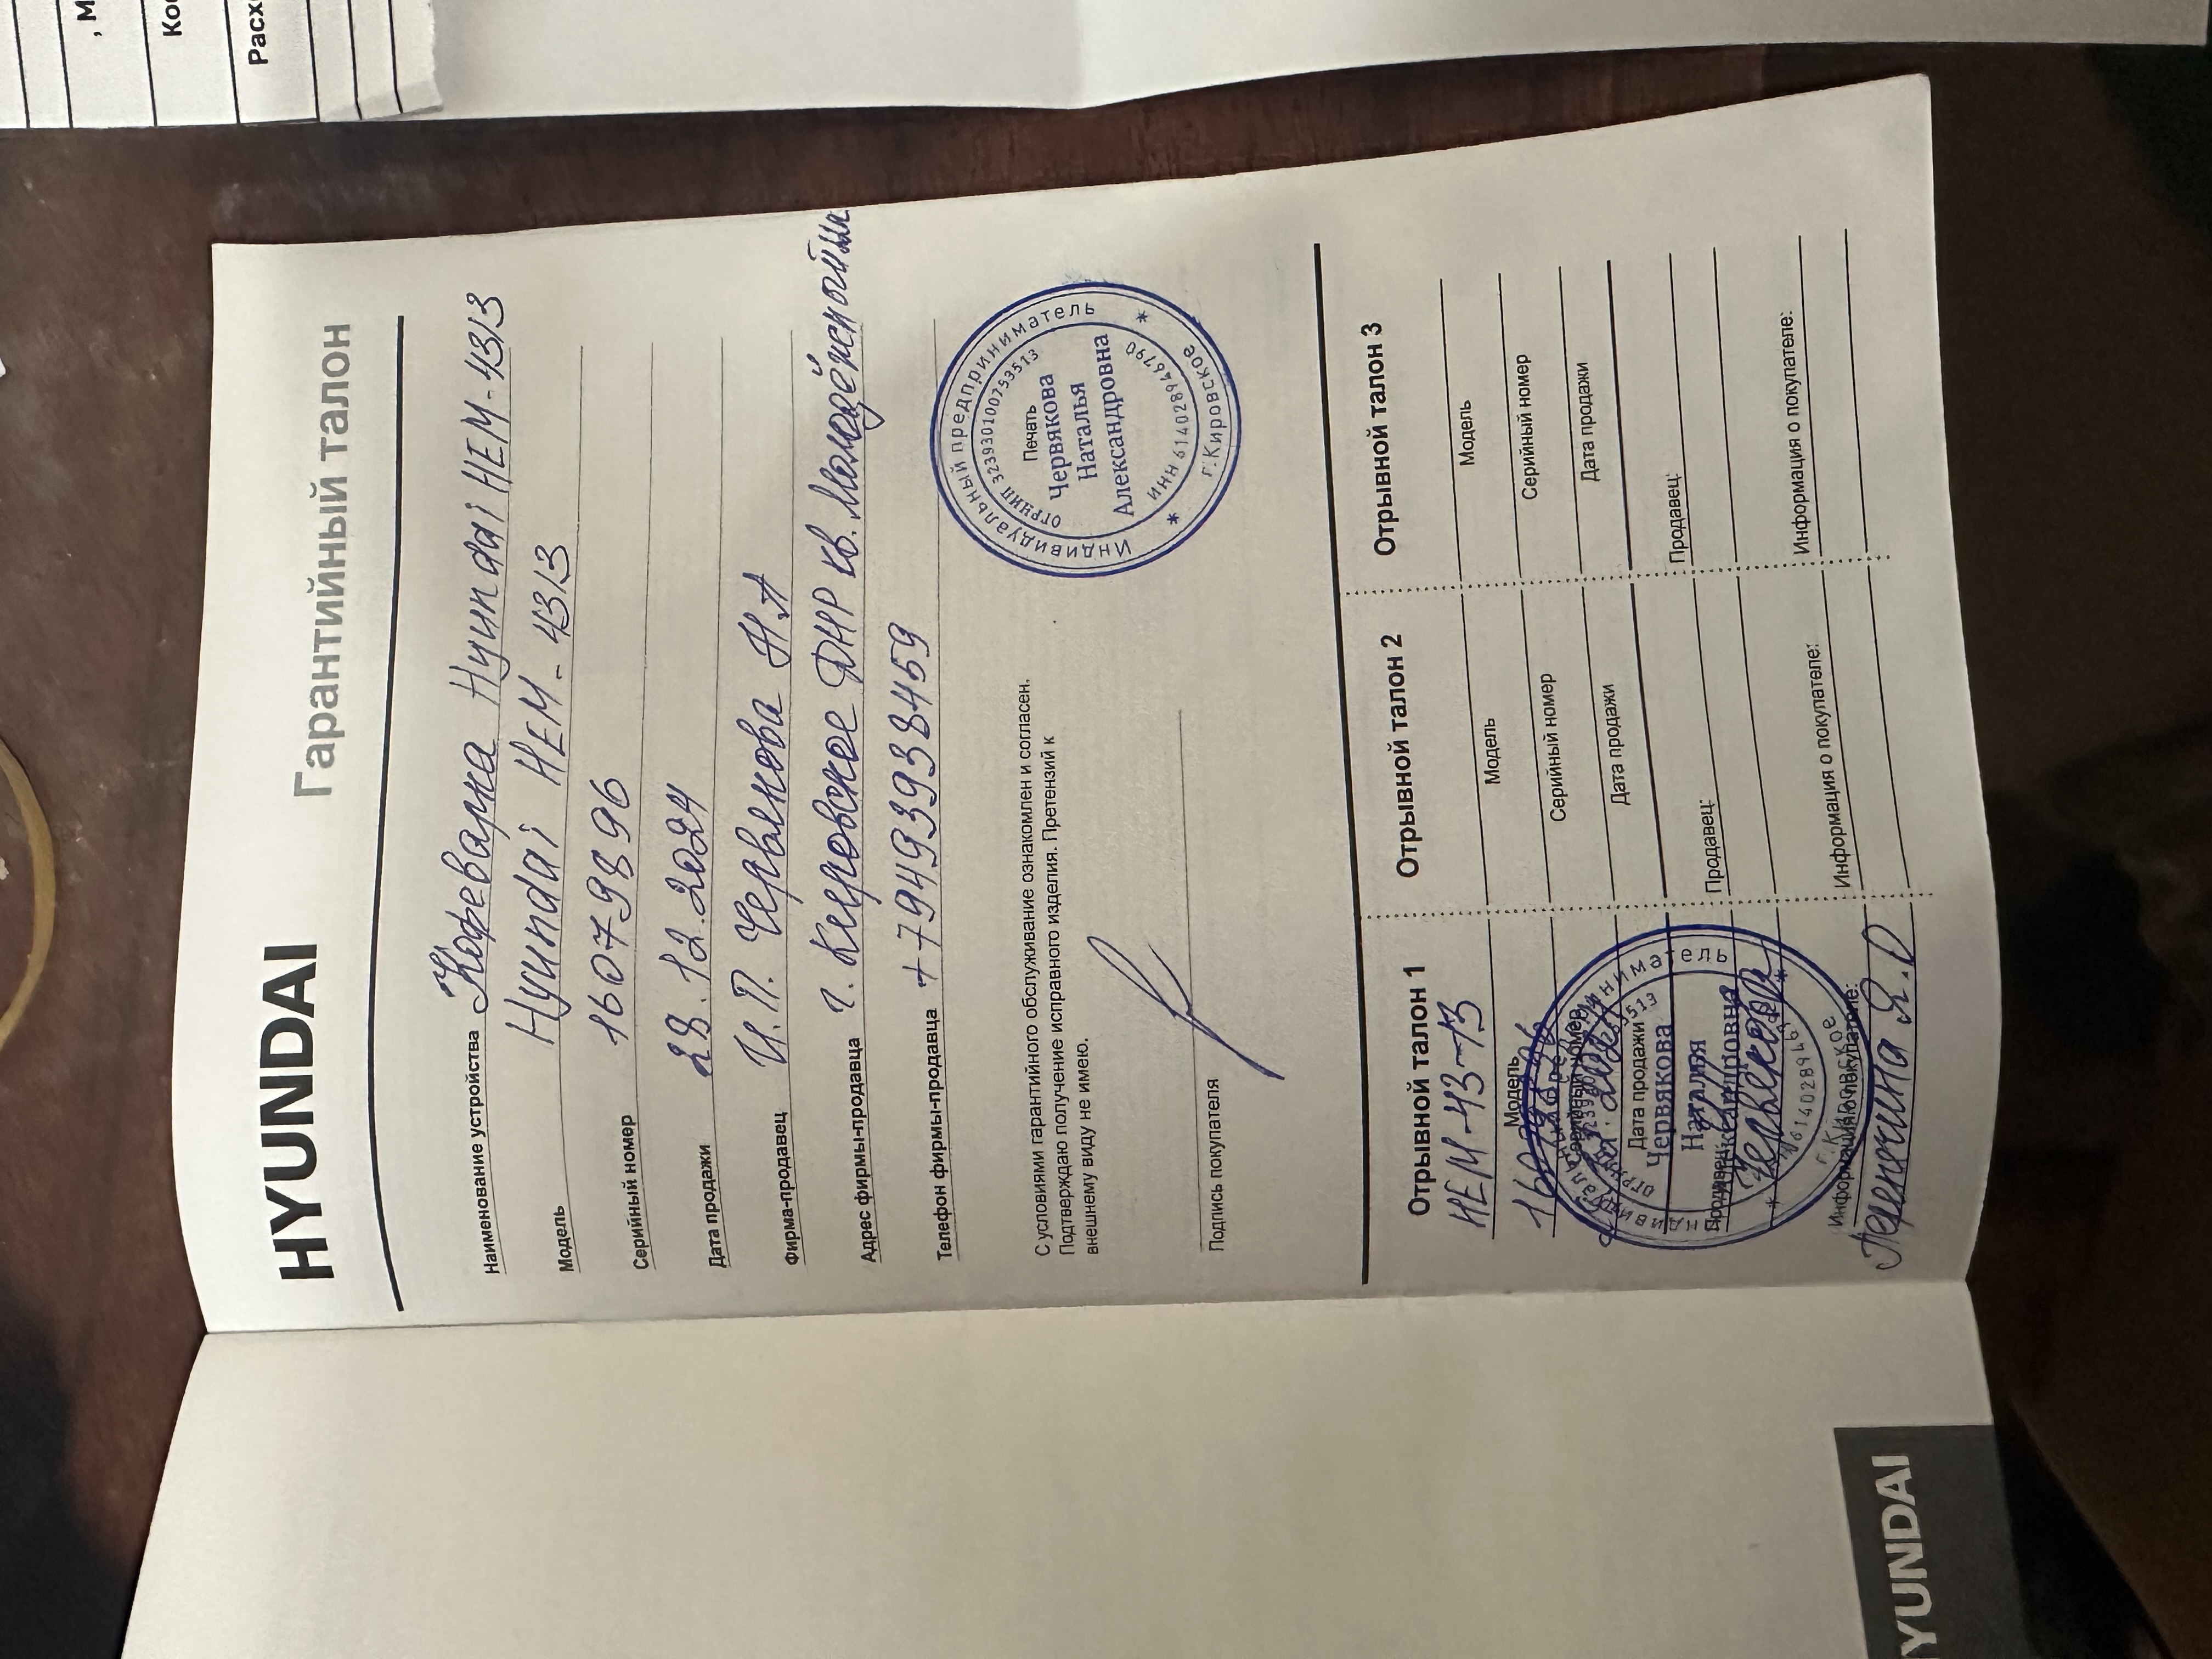 , М
Ко
Расх
HYUNDAI
Гарантийный талон
Наименование устройства Кофеварка Hyundai HEM-4313
Модель Hyundai HEM-4313
Серийный номер 16079896
Дата продажи 28.12.2024
Фирма-продавец И.П. Червякова Н.А
Адрес фирмы-продавца г. Кировское ДНР кв. Молодёжный
Телефон фирмы-продавца +79493938459
С условиями гарантийного обслуживание ознакомлен и согласен.
Подтверждаю получение исправного изделия. Претензий к
внешнему виду не имею.
Подпись покупателя
Индивидуальный предприниматель
ОГРНИП 323930100753513
Печать
Червякова
Наталья
Александровна
ИНН 614028946790
* г.Кировское *
Отрывной талон 1
HEM-43-13
Модель
16079896
Серийный номер
Дата продажи
Червякова
Наталья
Продавец:
Информация о покупателе:
г.Кировское
Отрывной талон 2
Модель
Серийный номер
Дата продажи
Продавец:
Информация о покупателе:
Отрывной талон 3
Модель
Серийный номер
Дата продажи
Продавец:
Информация о покупателе:
YUNDAI